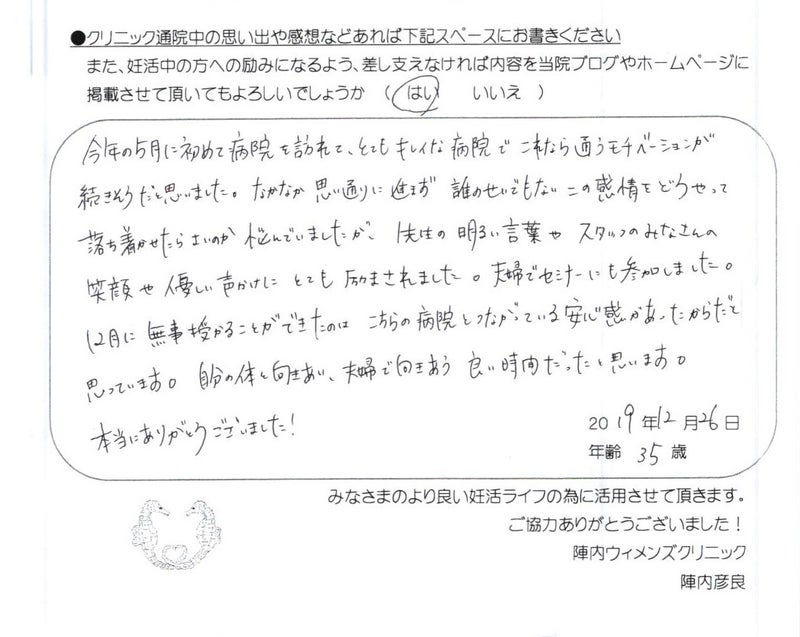 ●クリニック通院中の思い出や感想などあれば下記スペースにお書きください
また、妊活中の方への励みになるよう、差し支えなければ内容を当院ブログやホームページに
掲載させて頂いてもよろしいでしょうか （ はい いいえ ）
今年の5月に初めて病院を訪れて、とてもキレイな病院でこれなら通うモチベーションが
続きそうだと思いました。なかなか思い通りに進まず誰のせいでもないこの感情をどうやって
落ち着かせたらよいのか悩んでいましたが、先生の明るい言葉やスタッフのみなさんの
笑顔や優しい声かけにとても励まされました。夫婦でセミナーにも参加しました。
12月に無事授かることができたのはこちらの病院とつながっている安心感があったからだと
思っています。自分の体と向きあい、夫婦で向きあう良い時間だったと思います。
本当にありがとうございました！
2019年12月26日
年齢 35歳
みなさまのより良い妊活ライフの為に活用させて頂きます。
ご協力ありがとうございました！
陣内ウィメンズクリニック
陣内彦良